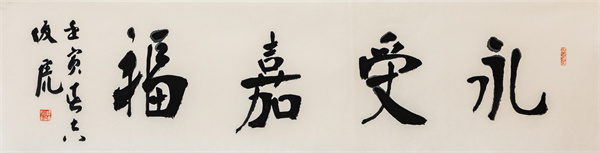 永受嘉福
壬寅春吉
俊虎